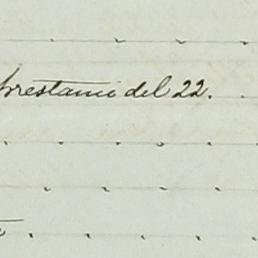 Prestamo del 22.